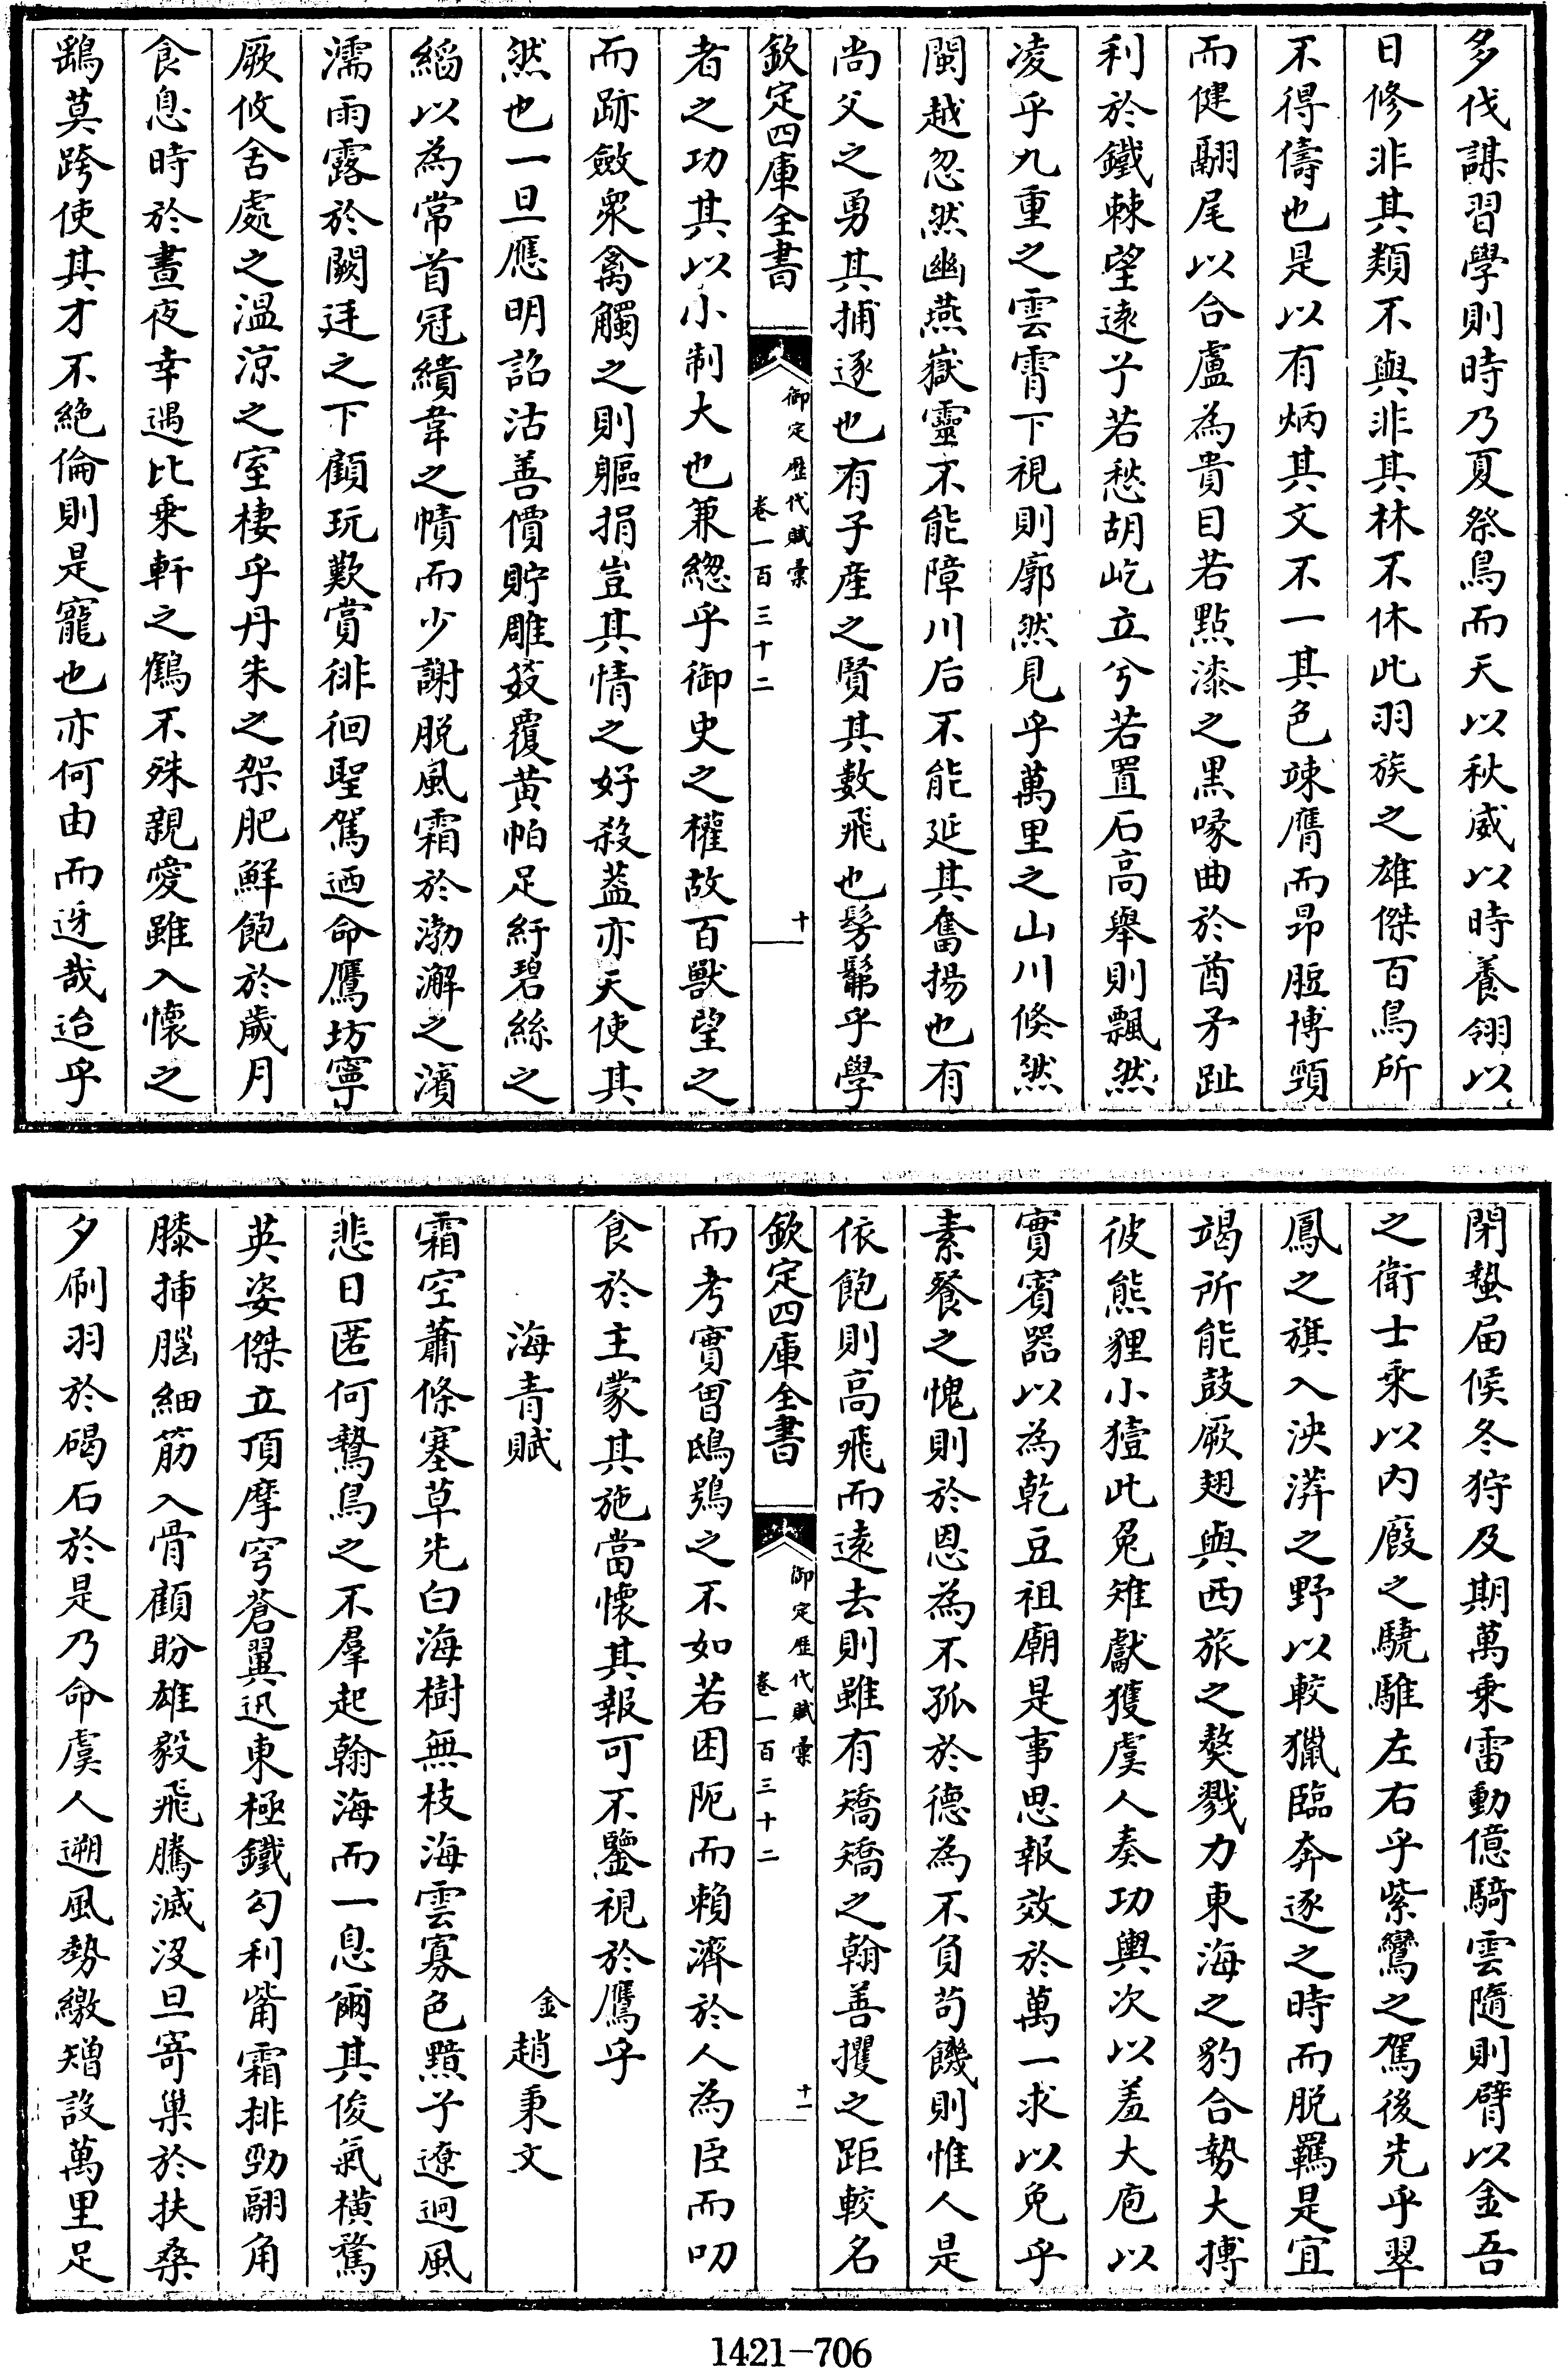 多伐謀習學則時乃夏祭鳥而天以秋威以時養翎以
日修非其類不與非其林不休此羽族之雄傑百鳥所
不得儔也是以有炳其文不一其色竦膺而昂脰博頸
而健翮尾以合盧為貴目若點漆之黑喙曲於酋矛趾
利於鐵棘望遠予若愁胡屹立兮若置石高舉則飄然
凌乎九重之雲霄下視則廓然見乎萬里之山川倏然
閩越忽然幽燕嶽靈不能障川后不能延其奮揚也有
尚父之勇其捕逐也有子產之賢其數飛也髣髴乎學
欽定四庫全書
御定歷代賦彙
卷一百三十二
十
者之功其以小制大也兼總乎御史之權故百獸望之
而跡斂衆禽觸之則軀捐豈其情之好殺葢亦天使其
然也一旦應明詔沽善價貯雕笯覆黃帕足紆碧絲之
縚以為常首冠繢韋之幘而少謝脫風霜於渤澥之濱
濡雨露於闕廷之下顧玩歎賞徘徊聖駕迺命鷹坊寧
厥攸舍處之溫涼之室棲乎丹朱之架肥鮮飽於歲月
食息時於晝夜幸遇比乗軒之鶴不殊親愛雖入懷之
鷂莫跨使其才不絶倫則是寵也亦何由而迓哉迨乎
閉蟄届候冬狩及期萬乘雷動億騎雲隨則臂以金吾
之衛士乘以内廐之驍騅左右乎紫鸞之駕後先乎翠
鳳之旗入泱漭之野以較獵臨奔逐之時而脱羈是宜
竭所能鼓厥翅與西旅之獒戮力東海之豹合勢大搏
彼熊貍小獲此兔雉獻獲虞人奏功輿次以羞大庖以
實賓器以為乾豆祖廟是事思報效於萬一求以免乎
素餐之愧則於恩為不孤於德為不負苟饑則惟人是
依飽則高飛而遠去則雖有矯矯之翰善攫之距較名
欽定四庫全書
御定歷代賦彙
卷一百三十二
十一
而考實曾鴟鴞之不如若困阨而賴濟於人為臣而叨
食於主蒙其施當懷其報可不鑒視於鷹乎
海青賦
金趙秉文
霜空蕭條塞草先白海樹無枝海雲寡色黯予遼迥風
悲日匿何鷙鳥之不羣起翰海而一息爾其俊氣橫騖
英姿傑立頂摩穹蒼翼迅東極鐵勾利觜霜排勁翮角
膝插腦細筋入骨顧盼雄毅飛騰滅没旦寄巢於扶桑
夕刷羽於碣石於是乃命虞人遡風勢繳矰設萬里足
1421-706